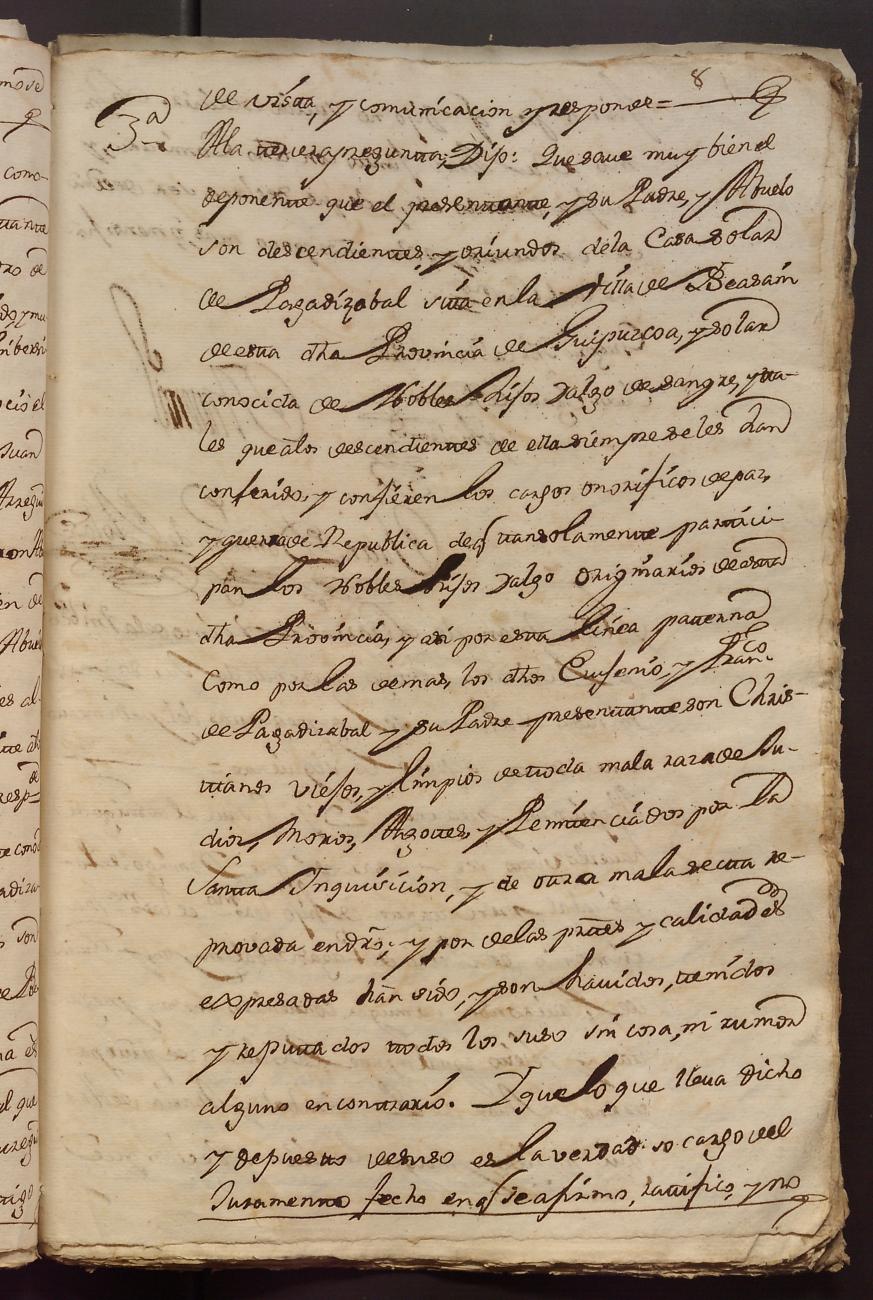 8
de vista, y comunicacion y responde =
3ª
Ala tercera pregunta, Dijo: Que save muy bien el
deponente que el presentante, y su Padre, y Abuelo
son descendientes, y oriundos dela Casa solar
de Pagadizabal sita en la Villa de Beasain
de esta dha Provincia de Guipuzcoa, y solar
conocida de Nobles Hijos Dalgo de sangre, y ta-
les que alos descendientes de ella siempre se les han
conferido, y confieren los cargos onorificos de paz,
y guerra de Republica de q tan solamente partici-
pan los Nobles hijos Dalgo originarios de esta
dha Provincia, y asi por esta linea paterna
como por las demas, los dhos Eusenio, y Franco
de Pagadizabal y su Padre presentante son Chris-
tianos viejos, y limpios de toda mala raza de Ju-
dios, Moros, Agotes, y Penitenciados por la
Santa Inquisicion, y de otra mala secta re-
provada en dro; y por de las partes y calidades
expresadas han sido, y son havidos, tenidos
y reputados todos los suso sin cosa, ni rumor
alguno en contrario. Y que lo que lleva dicho
y depuesto de suso es la verdad so cargo del
Juramento fecho en q se afirmo, ratifico, y no